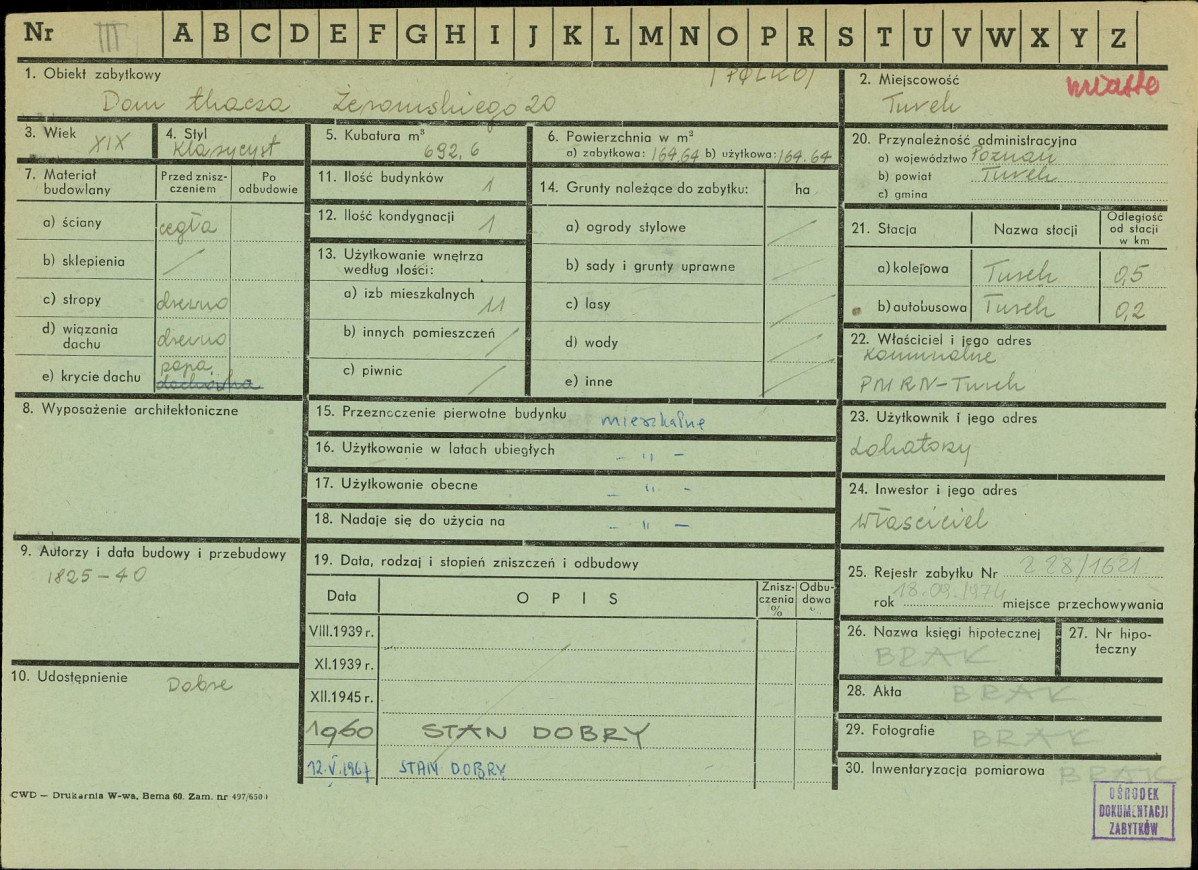 Nr III A B C D E F G H I J K L M N O P R S T U V W X Y Z
1. Obiekt zabytkowy
Dom tkacza Żeromskiego 20
2. Miejscowość miasto
Turek
3. Wiek XIX
4. Styl klasycyst
5. Kubatura m³ 692,6
6. Powierzchnia w m²
a) zabytkowa: 164.64 b) użytkowa: 164.64
20. Przynależność administracyjna
a) województwo Poznań
b) powiat Turek
c) gmina
7. Materiał budowlany
Przed znisz-czeniem
Po odbudowie
a) ściany cegła
b) sklepienia /
c) stropy drewno
d) wiązania dachu drewno
e) krycie dachu papa
dachówka
11. Ilość budynków 1
12. Ilość kondygnacji 1
13. Użytkowanie wnętrza
według ilości:
a) izb mieszkalnych 11
b) innych pomieszczeń /
c) piwnic /
14. Grunty należące do zabytku: ha
a) ogrody stylowe /
b) sady i grunty uprawne /
c) lasy /
d) wody /
e) inne /
21. Stacja
Nazwa stacji
Odległość
od stacji
w km
a) kolejowa Turek 0,5
b) autobusowa Turek 0,2
22. Właściciel i jego adres
Komunalne
PMRN-Turek
8. Wyposażenie architektoniczne
15. Przeznaczenie pierwotne budynku mieszkalne
16. Użytkowanie w latach ubiegłych - " -
17. Użytkowanie obecne - " -
18. Nadaje się do użycia na - " -
23. Użytkownik i jego adres
Lokatorzy
24. Inwestor i jego adres
właściciel
9. Autorzy i data budowy i przebudowy
1825-40
19. Data, rodzaj i stopień zniszczeń i odbudowy
Data
OPIS
Znisz-
czenia
%
Odbu-
dowa
VIII.1939 r.
XI.1939 r.
XII.1945 r.
1960 STAN DOBRY
12.V.1967 STAN DOBRY
25. Rejestr zabytku Nr 228/1621
rok 18.09.1974 miejsce przechowywania
26. Nazwa księgi hipotecznej
BRAK
27. Nr hipo-
teczny
10. Udostępnienie Dobre
28. Akta BRAK
29. Fotografie BRAK
30. Inwentaryzacja pomiarowa BRAK
CWD — Drukarnia W-wa, Bema 60. Zam. nr 497/650
OŚRODEK
DOKUMENTACJI
ZABYTKÓW